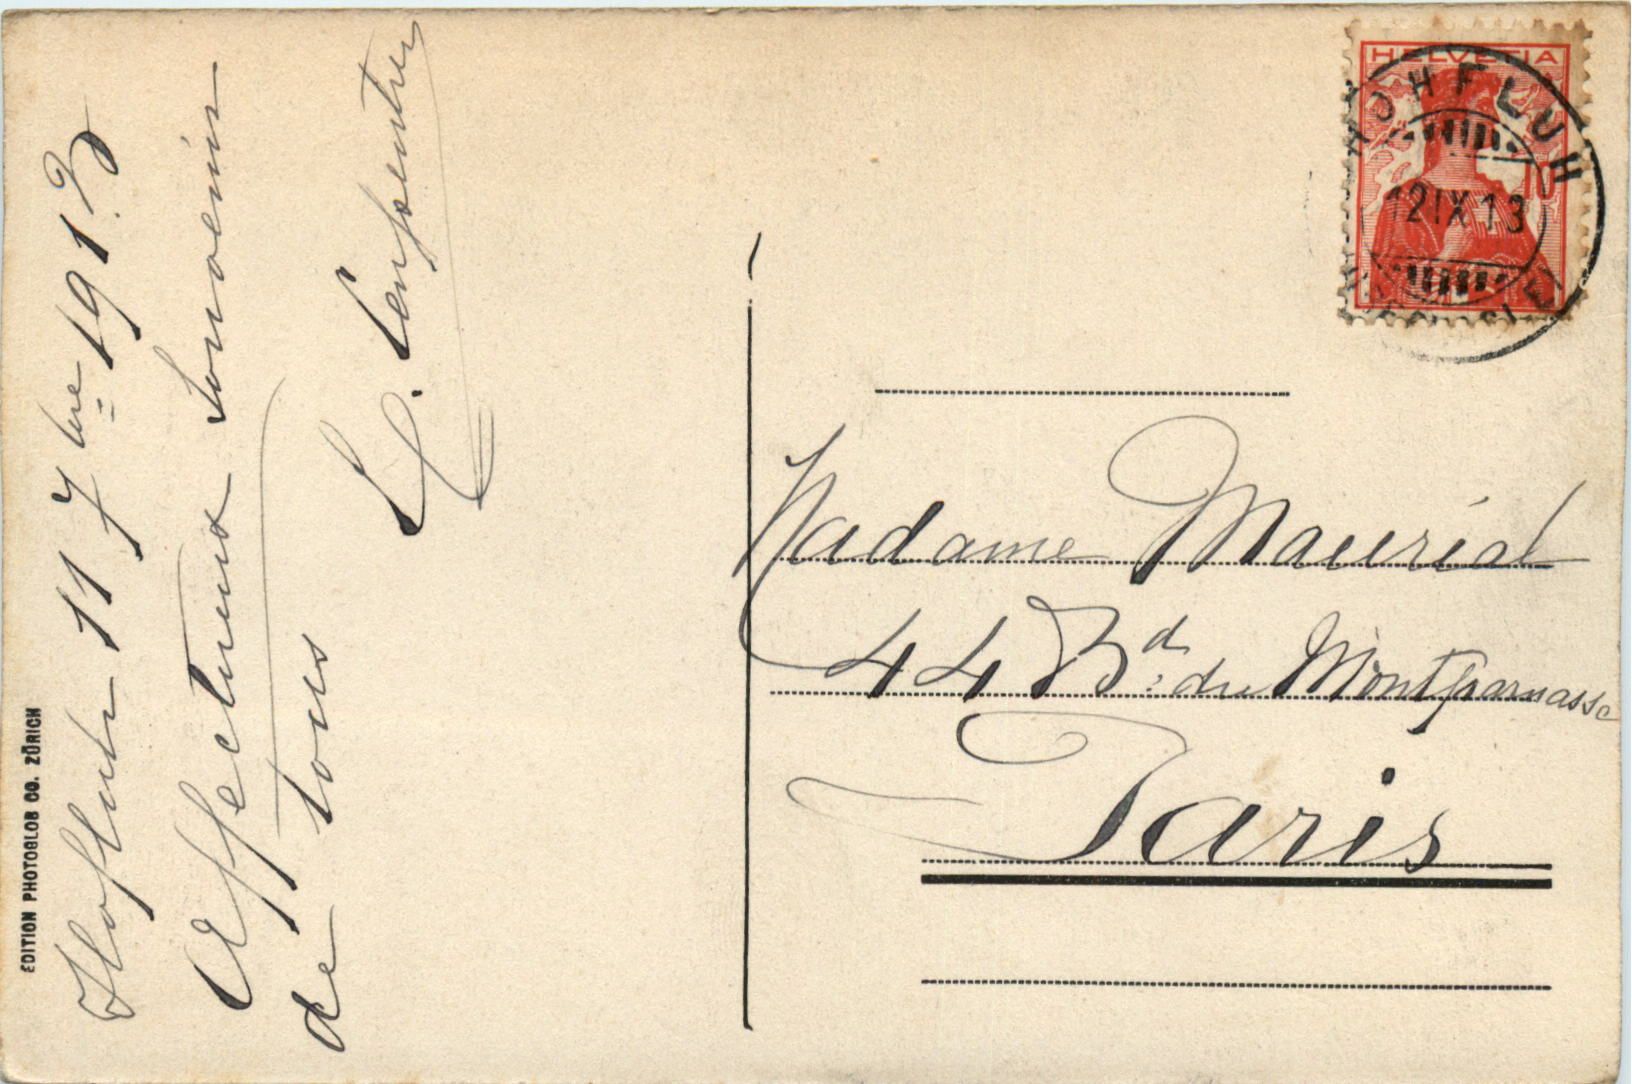 EDITION PHOTOGLOB CO. ZÜRICH
Hofluh 11 7bre 1913
Affectueux souvenirs
de tous
HELVETIA
10
HOHFLUH
12 IX 13
Madame Mauriat
44 Bd. du Montparnasse
Paris